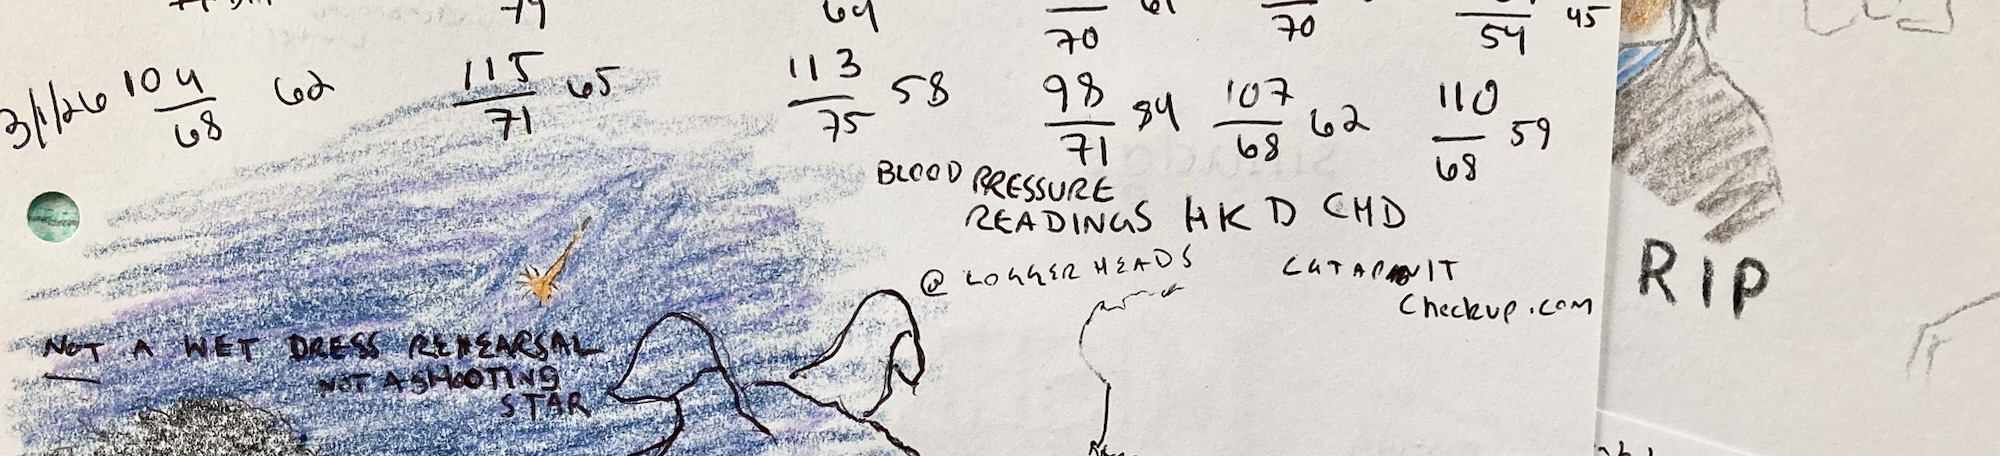 79 64 70 61 70 54 45
3/1/26 104/68 62 115/71 65 113/75 58 98/71 84 107/68 62 110/68 59
BLOOD PRESSURE
READINGS HKD CHD
@ LOGGERHEADS
Checkup.com
RIP
NOT A WET DRESS REHEARSAL
NOT A SHOOTING
STAR